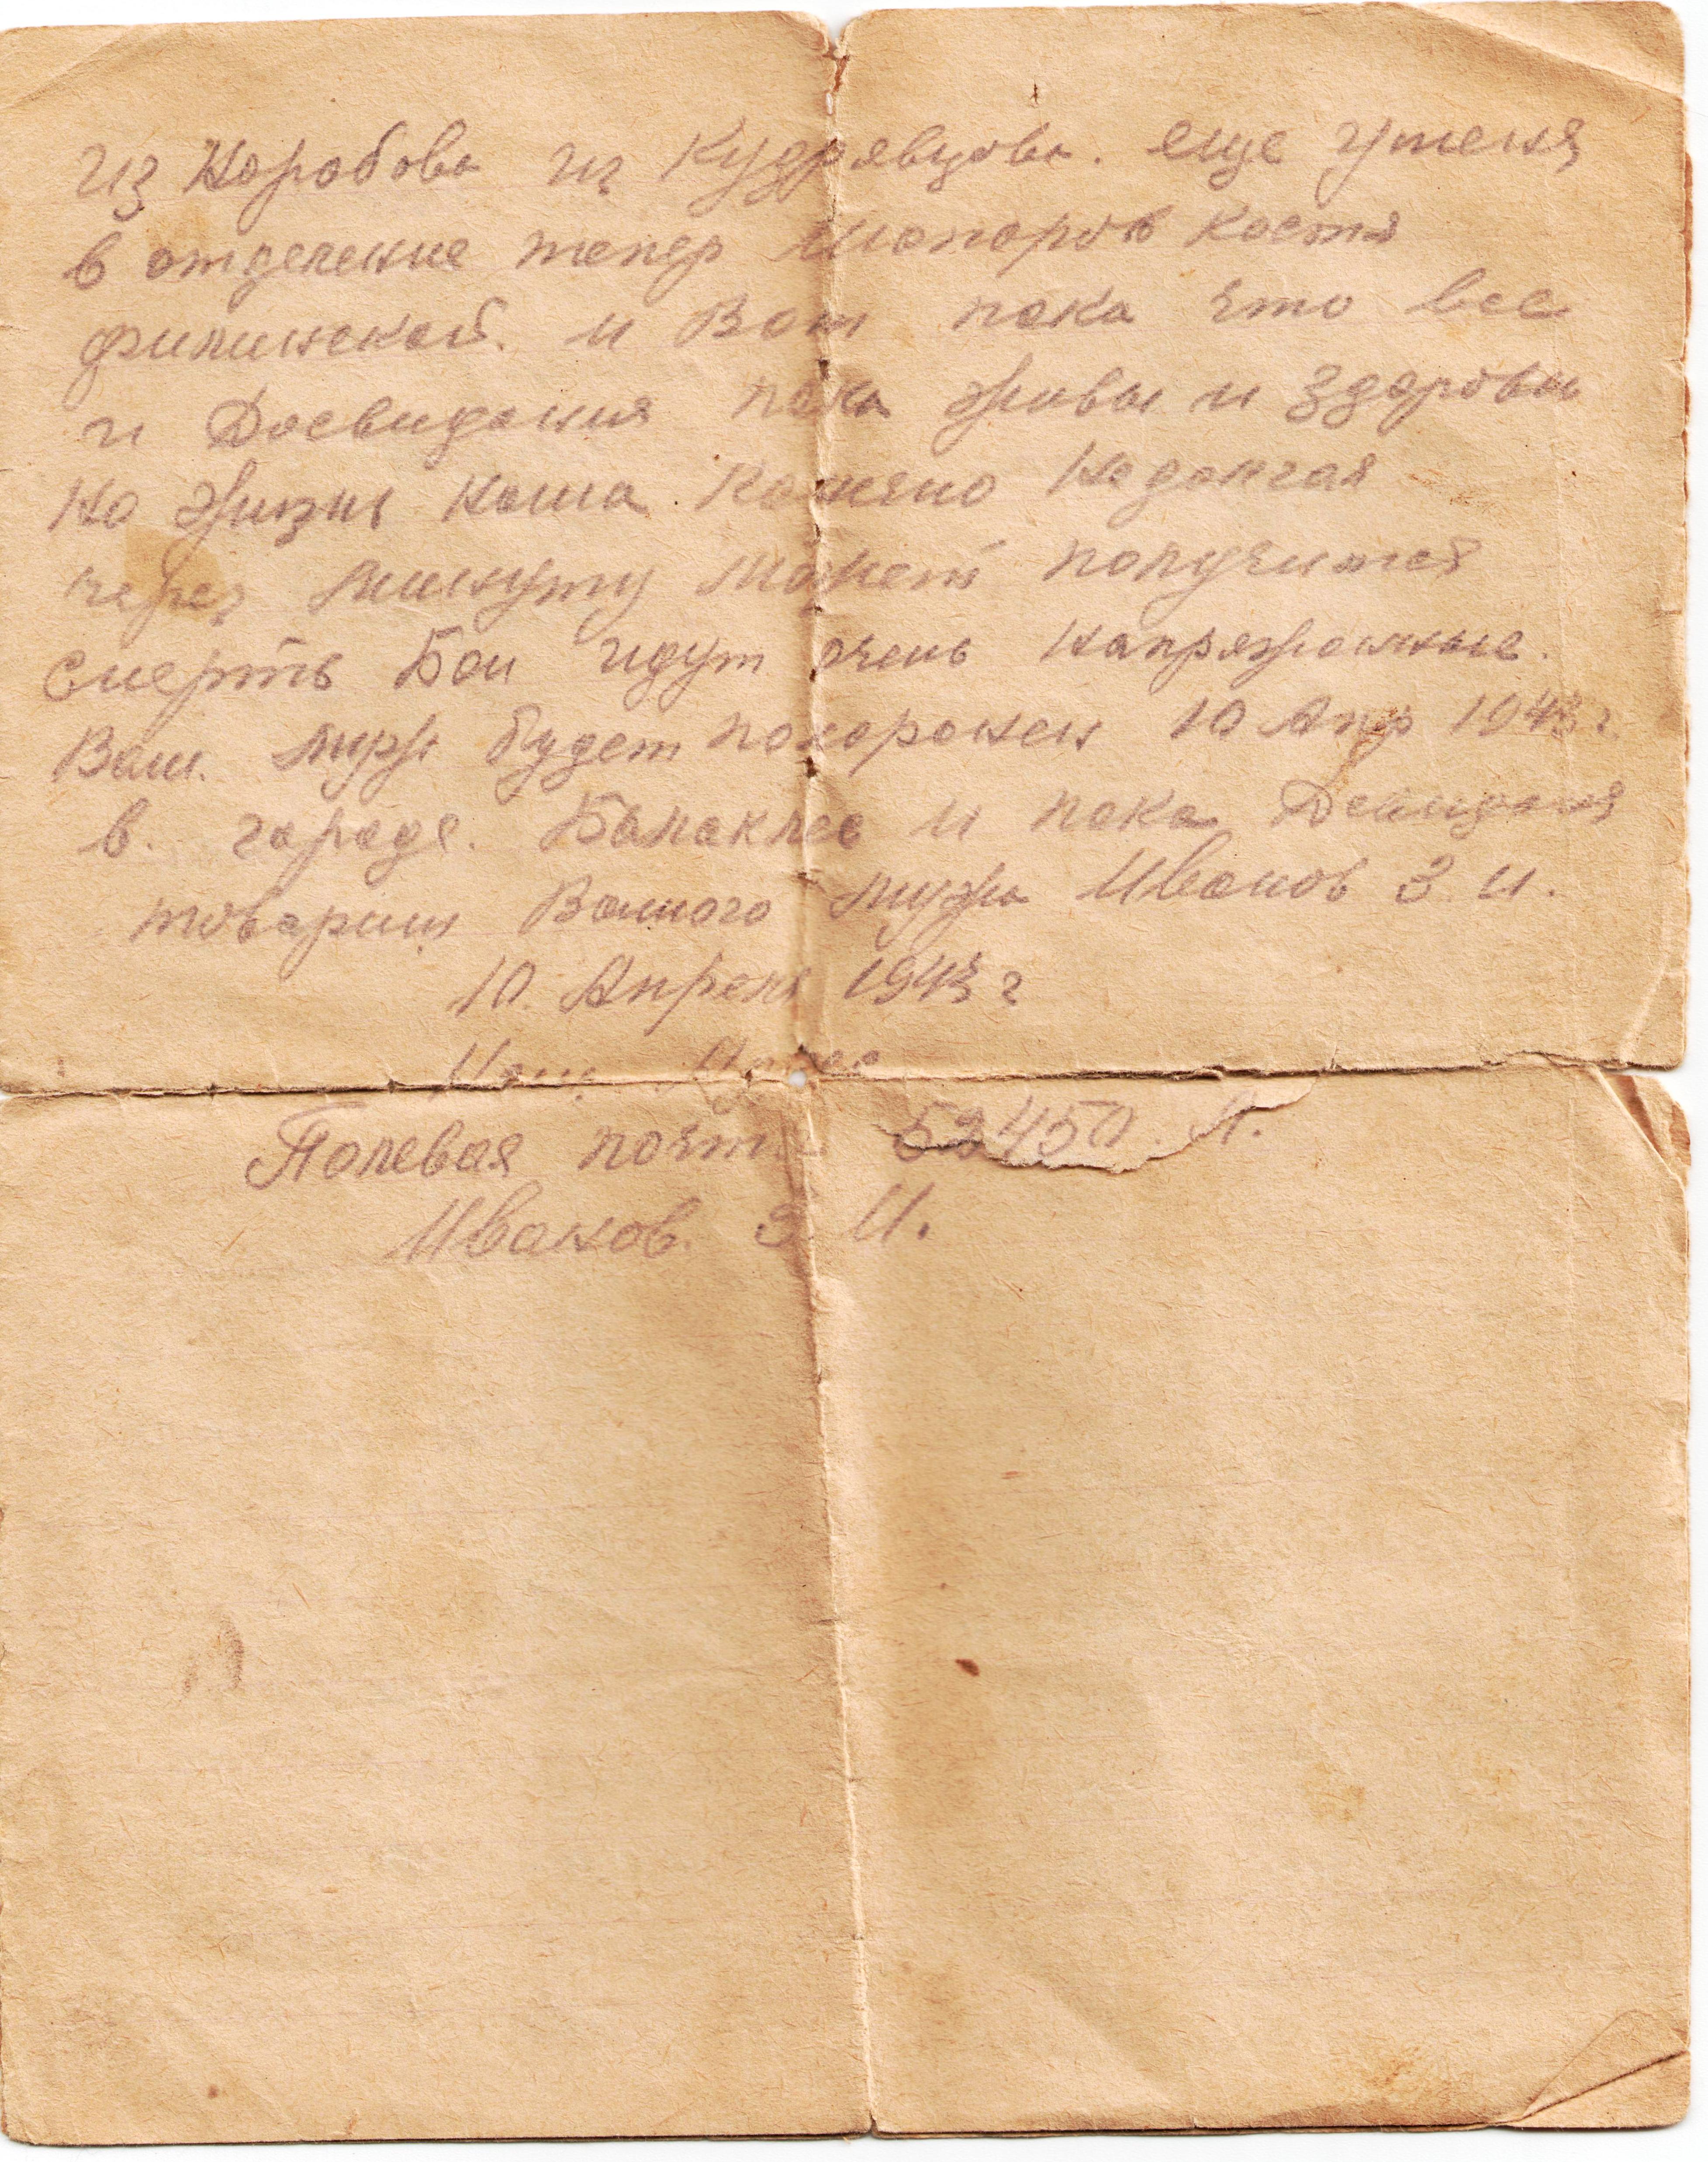 из Коробова из Кудрявцова. еще уменя
в отделение тепер Шопоров Костя
филинской. и Вот пока что все
и Досвидония пока живы и здоровы
но жизнь наша. Конечно недолгая
через минуту может получится
смерть Бои идут очень напряжонные.
Ваш. муж будет похоронен 10 Апр 1943 г.
в. городе. Балаклее и пока Девидания
товарищ Вашого мужа Иванов З. И.
10. Апреля 1943 г
Наш Адрес
Полевая почта 52450. А.
Иванов. З И.